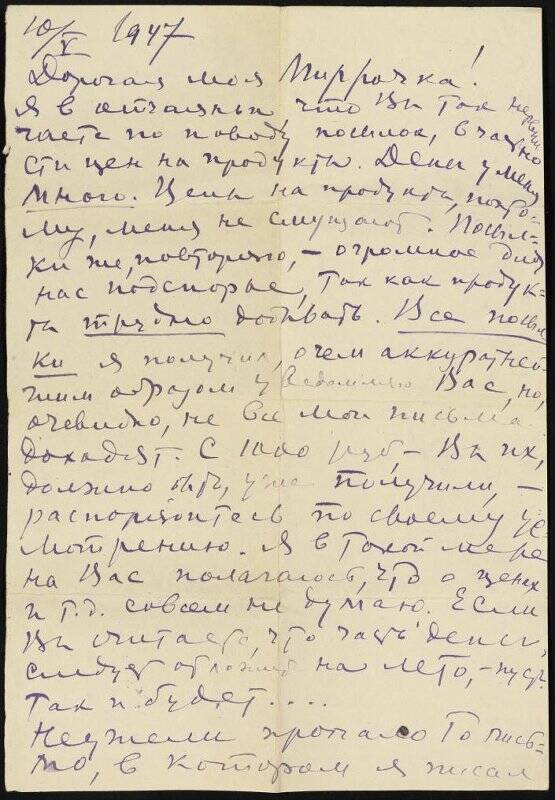 10/V 1947
Дорогая моя Миррочка!
Я в отчаяньи что Вы так нервни-
чаете по поводу посылок, в частно
сти цен на продукты. Денег у меня
много. Цены на продукты, поэто-
му, меня не смущают. Посыл-
ки же, повторяю, – огромное для
нас подспорье, так как продук-
ты трудно добывать. Все посыл
ки я получил, о чем аккуратней-
шим образом уведомляю Вас, но,
очевидно, не все мои письма
доходят. С 1000 руб, – Вы их,
должно быть, уже получили, –
распорядитесь по своему ус
мотрению. Я в такой мере
на Вас полагаюсь, что о ценах
и т.д. совсем не думаю. Если
Вы считаете, что часть денег
следует отложить на лето, – пусть
так и будет....
Неужели пропало то пись-
мо, в котором я писал